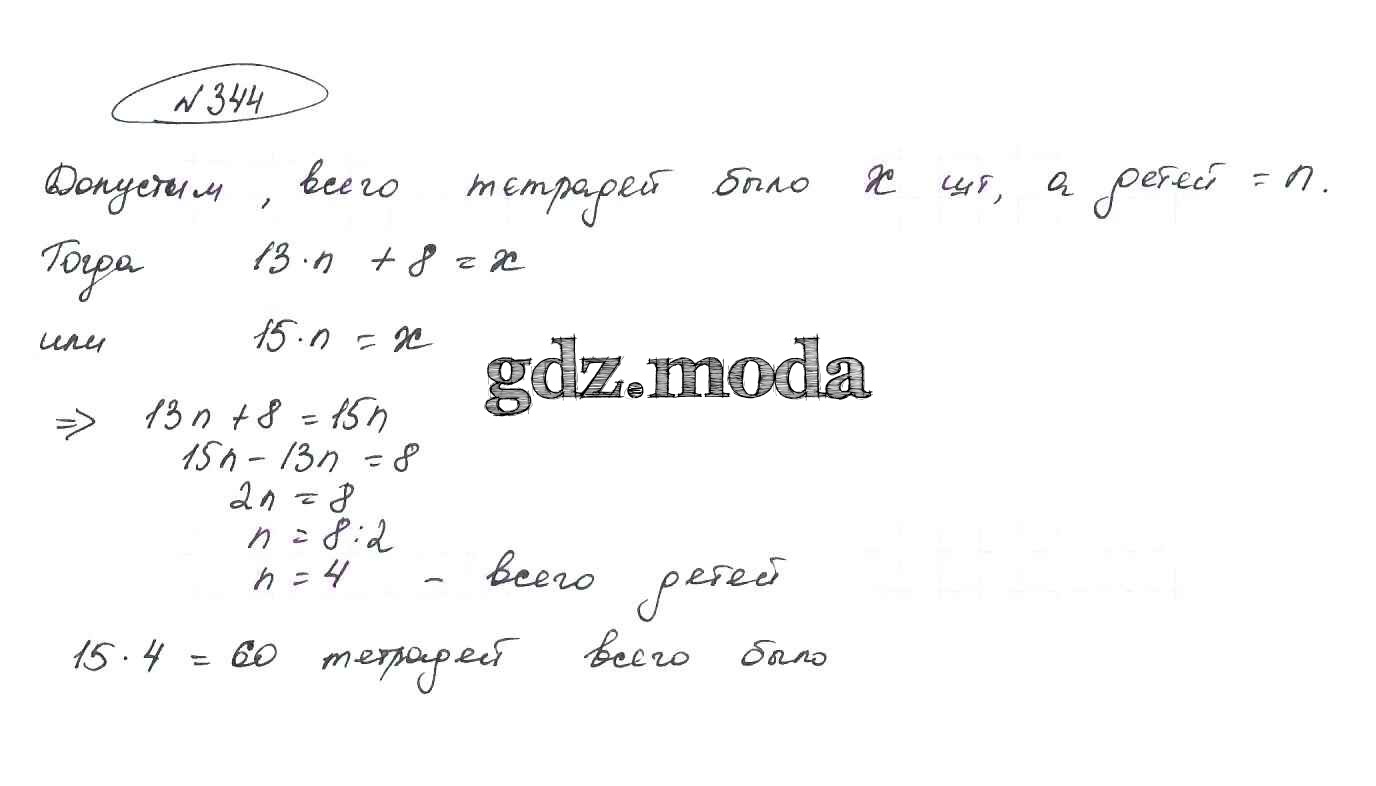 N 344
Допустим, всего тетрадей было x шт, а детей = n.
Тогда 13·n + 8 = x
или 15·n = x
gdz.moda
=> 13n + 8 = 15n
15n - 13n = 8
2n = 8
n = 8:2
n = 4 - всего детей
15·4 = 60 тетрадей всего было